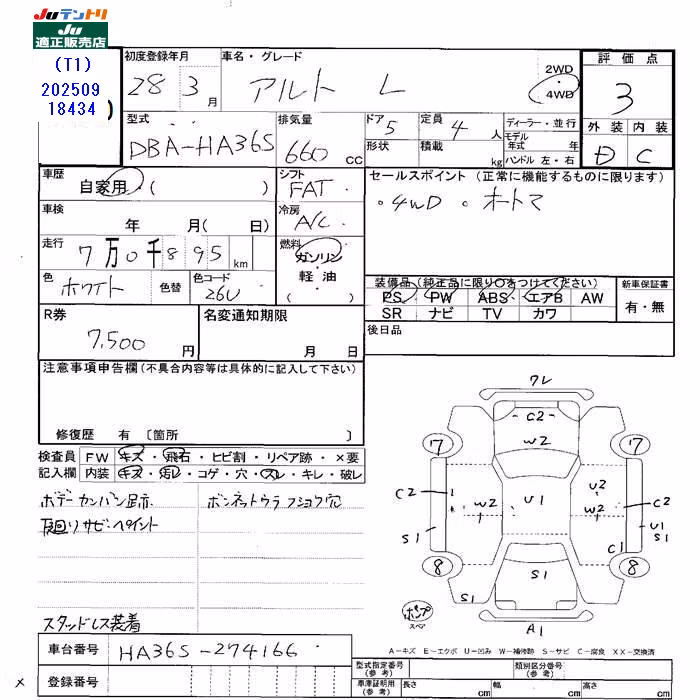 Juテントリ
Ju
適正販売店
(T1)
202509
18434 )
初度登録年月
28 3 月
車名・グレード
アルト L
2WD
4WD
評価点
3
外装 内装
D C
型式
DBA-HA36S
排気量
660 cc
ドア 5
形状
定員 4 人
積載 kg
ディーラー・並行
モデル年式 年
ハンドル 左・右
車歴
自家用・( )
シフト
FAT
セールスポイント (正常に機能するものに限ります)
・4WD ・オートマ
車検
年 月( 日)
冷房
A/C
走行
7万0千895 km
燃料
ガソリン・
軽油
( )
色
ホワイト
色替
色コード
26U
装備品 (純正品に限り○をつけてください)
PS PW ABS エアB AW
SR ナビ TV カワ
新車保証書
有・無
R券
7,500 円
名変通知期限
月 日
後日品
注意事項申告欄(不具合内容等は具体的に記入して下さい)
修復歴 有 〔箇所 〕
検査員
記入欄
FW キズ・飛石・ヒビ割・リペア跡・×要
内装 キズ・汚レ・コゲ・穴・スレ・キレ・破レ
ボデーカンバン跡
ボンネットウラフショフ穴
下廻リサビ・ペイント
スタッドレス装着
ワレ
C2
W2
17
17
C2
W2
U1
U2
W2
C2
S1
U1
S1
C1
8
8
S1
S1
A1
ポンプ
スペア
A=キズ E=エクボ U=凹み W=補修跡 S=サビ C=腐食 XX=交換済
車台番号
HA36S-274166
× 登録番号
型式指定番号
(参考)
類別区分番号
(参考)
車庫証明用
(参考)
長さ cm
幅 cm
高さ cm